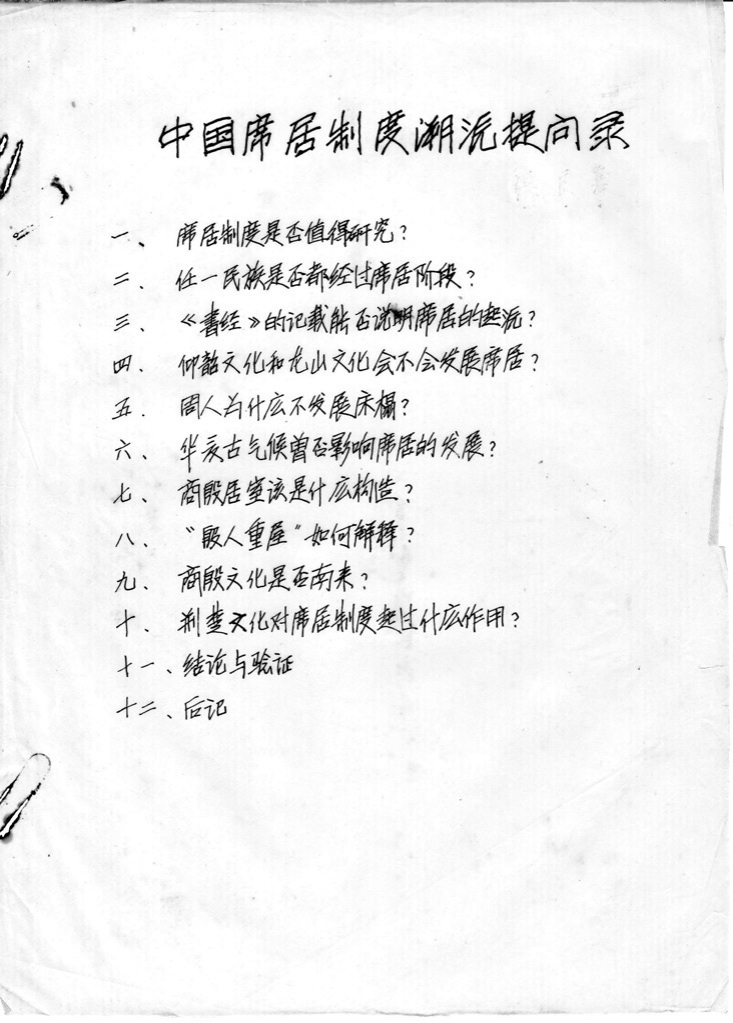 中国席居制度溯沅提问录
一、席居制度是否值得研究?
二、任一民族是否都经过席居阶段?
三、《書经》的记载能否说明席居的起沅?
四、仰韶文化和龙山文化会不会发展席居?
五、周人为什庅不发展床榻?
六、华夏古气候曾否影响席居的发展?
七、商殷居室该是什庅构造?
八、"殷人重屋"如何解释?
九、商殷文化是否南来?
十、荆楚文化对席居制度起过什庅作用?
十一、结论与验证
十二、后记